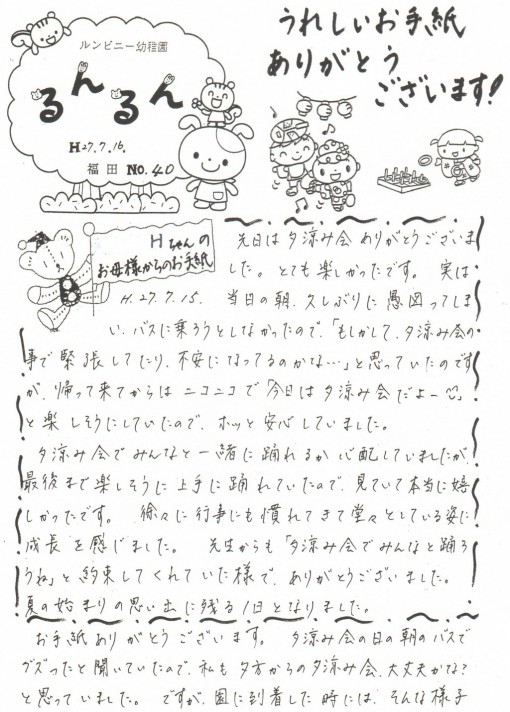 ルンビニー幼稚園
るんるん
H27.7.16.
福田 NO.40
うれしいお手紙
ありがとう
ございます!
Hちゃんの
お母様からのお手紙
H.27.7.15.
先日は夕涼み会ありがとうございま
した。とても楽しかったです。 実は
当日の朝、久しぶりに愚図ってしま
い、バスに乗ろうとしなかったので、「もしかして、夕涼み会の
事で緊張してたり、不安になってるのかな…」と思っていたのです
が、帰って来てからはニコニコで「今日は夕涼み会だよー♡」
と楽しそうにしていたので、ホッと安心していました。
夕涼み会でみんなと一緒に踊れるか心配していましたが
最後まで楽しそうに上手に踊れていたので、見ていて本当に嬉
しかったです。 徐々に行事にも慣れてきて堂々としている姿に
成長を感じました。 先生からも「夕涼み会でみんなと踊ろ
うね」と約束してくれていた様で、ありがとうございました。
夏の始まりの思い出に残る1日となりました。
お手紙ありがとうございます。 夕涼み会の日の朝のバスで
グズったと聞いていたので、私も夕方からの夕涼み会、大丈夫かな?
と思っていました。 ですが、園に到着した時には、そんな様子